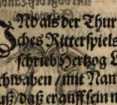 Nd als der Thur
sches Ritterspiels
schrieb Hertzog L
chwaben / mit Nan
daß er auff sein n